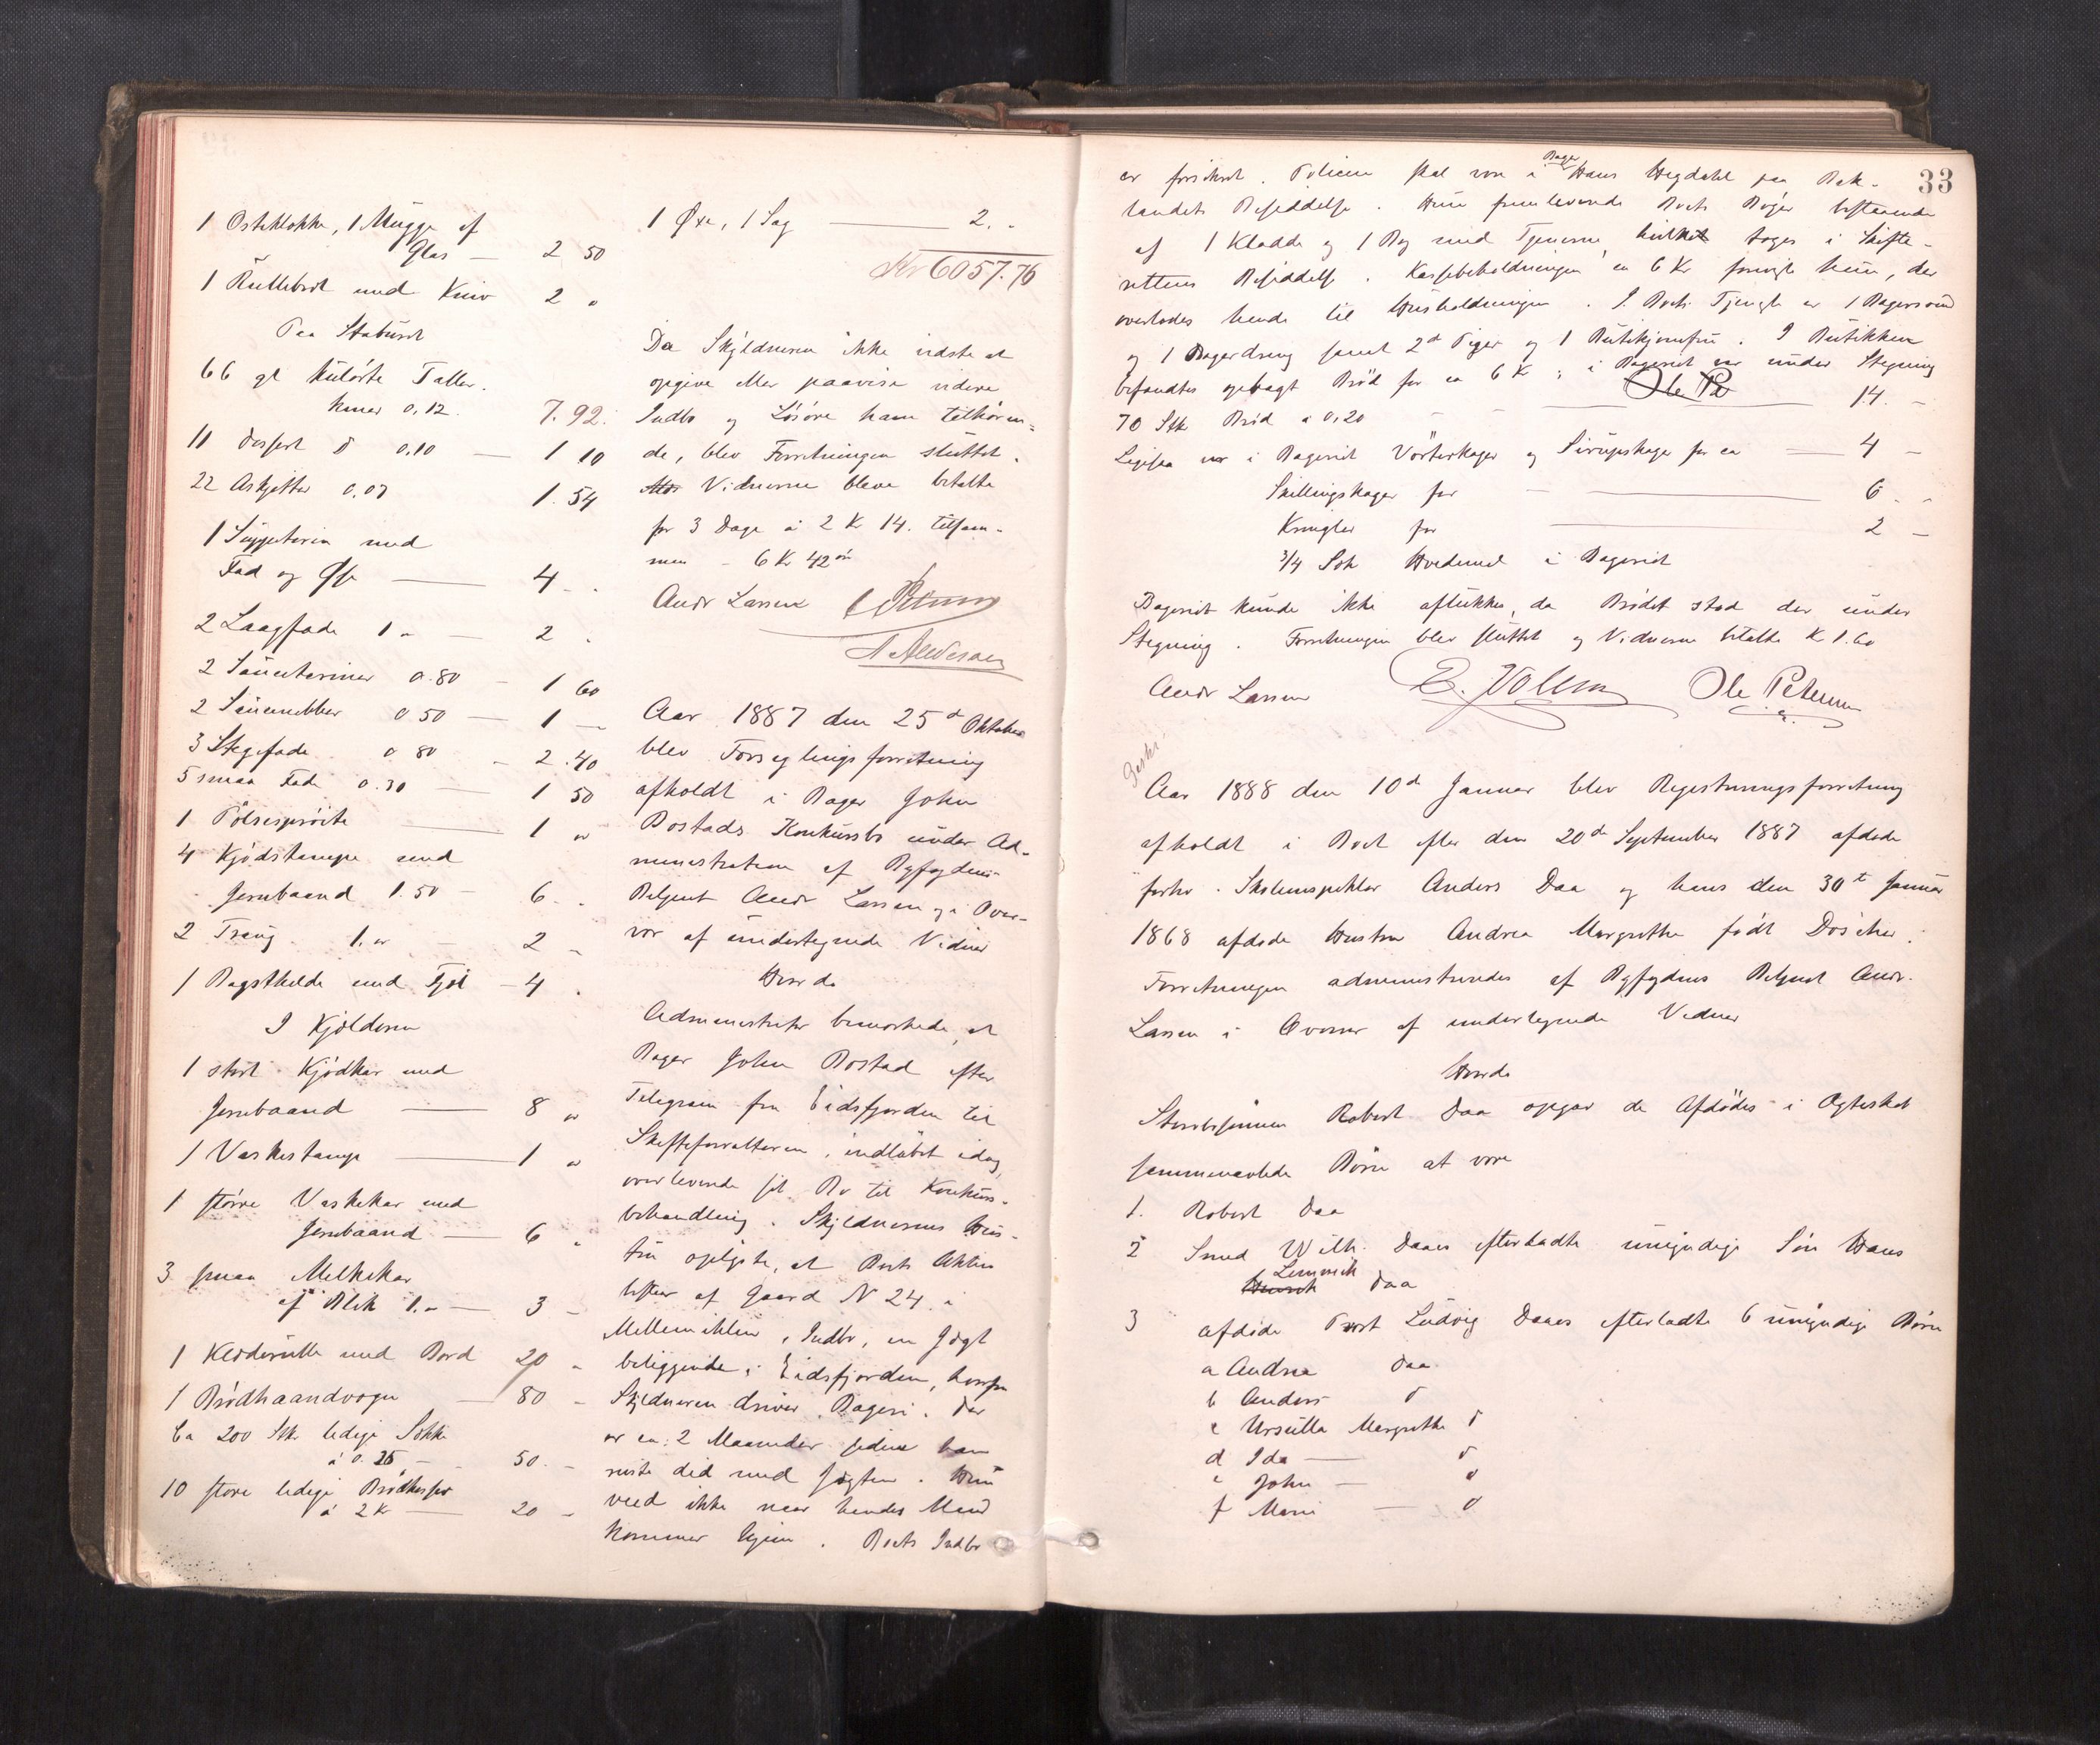 1 Osteklokke, 1 Mugge af
Glas — 2 50
1 Rullebret med Kniv 2 "
Paa Staburet
66 gl kulörte Taller-
kener 0.12. 7.92.
11 dessert d 0.10 — 1 10
22 Askjetter 0.07 1.54
1 Suppeterin med
Fad og Öse — 4 -
2 Laagfade 1 " — 2 "
2 Sauceteriner 0.80 — 1 60
2 Saucenebber 0 50 — 1 —
3 Stegefade 0 80 - 2.40
5 smaa Fade 0.30 — 1 50
1 Pölsespröite — 1 "
4 Kjödstampe med
Jernbaand 1.50 — 6 -
2 Traug 1. " — 2 -
1 Bagstehelde med Fjöl — 4 .
I Kjelderen
1 stort Kjödkar med
Jernbaand — 8 "
1 Vaskestamp — 1 "
1 större Vaskekar med
Jernbaand — 6 "
3 smaa Melkekar
af Blik 1. " — 3 -
1 Klæderulle med Bord 20 -
1 Brödhaandvogn — 80 -
Ca 200 Stk ledige Sekke
à 0.25 — 50. -
10 store ledige Brödkasser
à 2 Kr — 20 -
1 Öxe, 1 Sag — 2. -
Kr 6057.76
Da Skyldneren ikke vidste at
opgive eller paavise videre
Indbo og Lösöre ham tilhören=
de, blev Forretningen sluttet.
Vidnerne bleve betalte
for 3 Dage à 2 Kr 14. tilsam-
men - 6 Kr 42 ör
Andr Larsen
Aar 1887 den 25d Oktober
blev Forseglingsforretning
afholdt i Bager John
Bostads Konkursbo under Ad-
ministration af Byfogdens
Betjent Andr Larsen og i Over-
vær af undertegnede Vidner
Hvorda
Administrator bemærkede, at
Bager John Bostad efter
Telegram fra Eidsfjorden til
Skifteforvalteren, indlöbet idag,
overleverede sit Bo til Konkurs-
behandling. Skyldnerens Hus-
tru oplyste, at Boets Aktiva
bestaar af Gaard N 24 i
Mellemikleven, Indbo, en Jægt
beliggende i Eidsfjorden, hvorfra
Skyldneren driver Bageri. Det
er ca: 2 Maaneder siden han
reiste did med Jægten. Hun
veed ikke naar hendes Mand
kommer hjem. Boets Indbo
33
er forsikret. Policen skal være i Bager Hans Hegdahl paa Bak-
landets Besiddelse. Hun fremleverede Boets Böger bestaaende
af 1 Kladde og 1 Bog med Tjenerne, hvilket toges i Skifte-
rettens Besiddelse. Kassebeholdningen ca 6 Kr foreviste hun, der
overlodes hende til Husholdningen. I Boets Tjeneste er 1 Bagersvend
og 1 Bagerdreng samt 2de Piger og 1 Butikjomfru. I Butikken
befandtes opbagt Bröd for ca 6 Kr; i Bageriet var under Stegning
Ole Pe
70 Stk Bröd à 0.20 — 14. -
Ligesaa var i Bageriet Vörterkager og Sirupskager for ca — 4 -
Skillingskager for — 6 - -
Kringler for — 2 -
3/4 Sæk Hvedemel i Bageriet
Bageriet kunde ikke aflukkes, da Brödet stod der under
Stegning. Forretningen blev sluttet og Vidnerne betalte K 1.60
Andr Larsen E. Volum Ole Petersen
Aar 1888 den 10de Januar blev Registreringsforretning
afholdt i Boet efter den 20de September 1887 afdöde
forhv. Skoleinspektör Anders Daa og hans den 30te Januar
1868 afdöde Hustru Andrea Margrethe födt Döscher.
Forretningen administreredes af Byfogdens Betjent Andr.
Larsen i Overvær af undertegnede Vidner
Hvorda
Stervbosönnen Robert Daa opgav de Afdödes i Ægteskab
sammenavlede Börn at være
1. Robert Daa
2 Smed Wilh. Daaes efterladte umyndige Sön Hans
Lemmich
Daa
3 afdöde Ludvig Daaes efterladte 6 umyndige Börn
a Andrea Daa
b Anders d
c Ursulla Margrethe d
d Ida — d
e John — d
f Marie — d